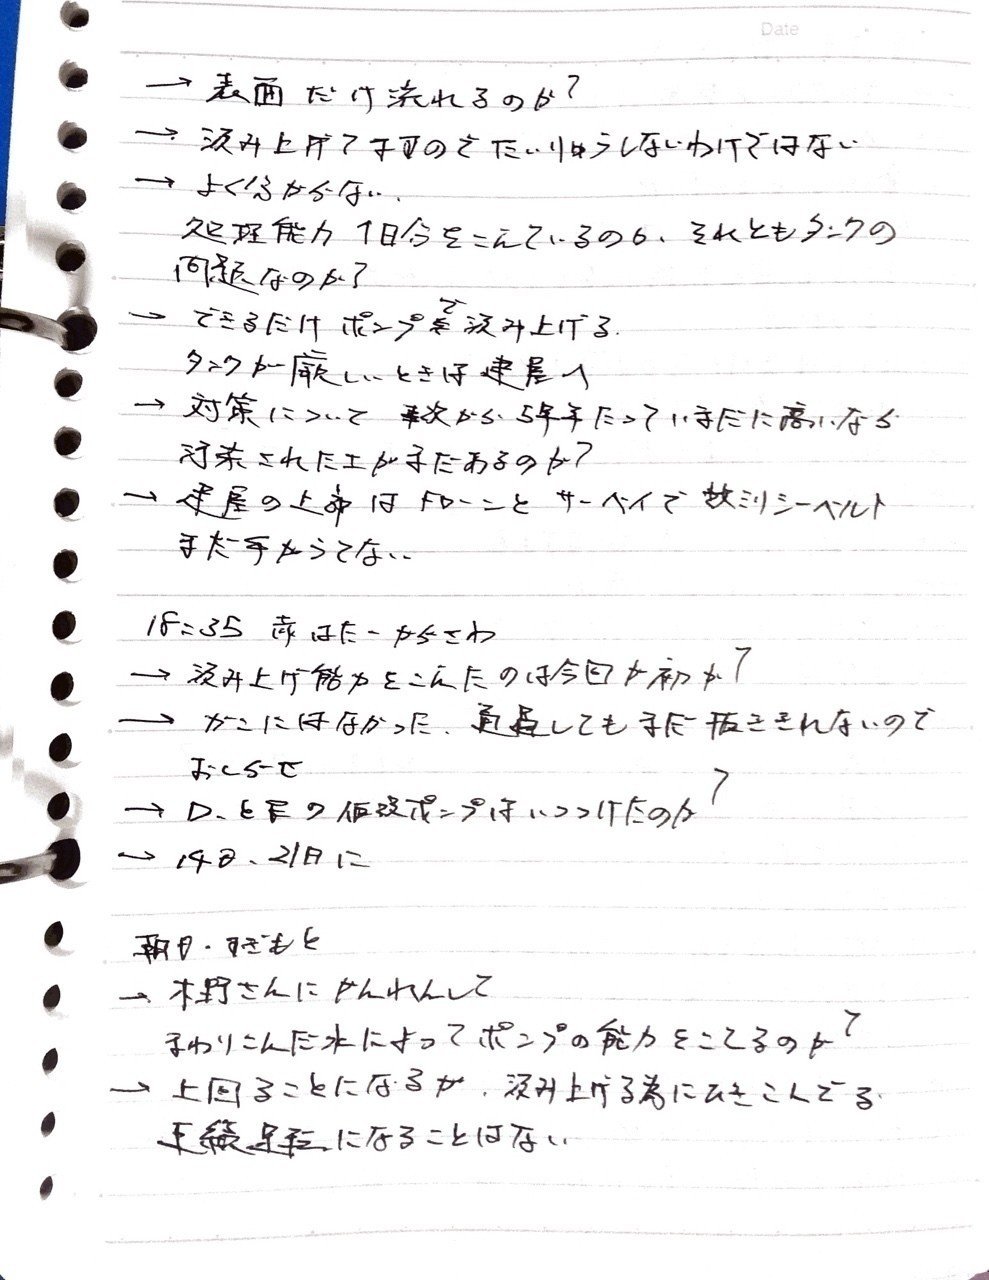 Date
→ 表面だけ流れるのか?
→ 汲み上げてますのでたいりゅうしないわけではない
→ よく分からない.
処理能力 1日分をこえているのか、それともタンクの
問題なのか?
→ できるだけポンプで汲み上げる.
タンクが厳しいときは建屋へ
→ 対策について 次から 5年たっていまだに高いなら
汚染された土がまだあるのか?
→ 建屋の上部はドローンと サーベイで 数ミリシーベルト
まだ手がうてない.
18:35 赤はたーからさわ
→ 汲み上げ能力をこえたのは今回が初か?
→ かこにはなかった、通過してもまだ抜ききれないので
おしらせ
→ D、とEの仮設ポンプはいつつけたのか?
→ 14日、21日に
朝日・すぎもと
→ 木野さんにかんれんして
まわりこんだ水によってポンプの能力をこえるのか?
→ 上回ることになるが、汲み上げる為にひきこんでる.
連続運転になることはない